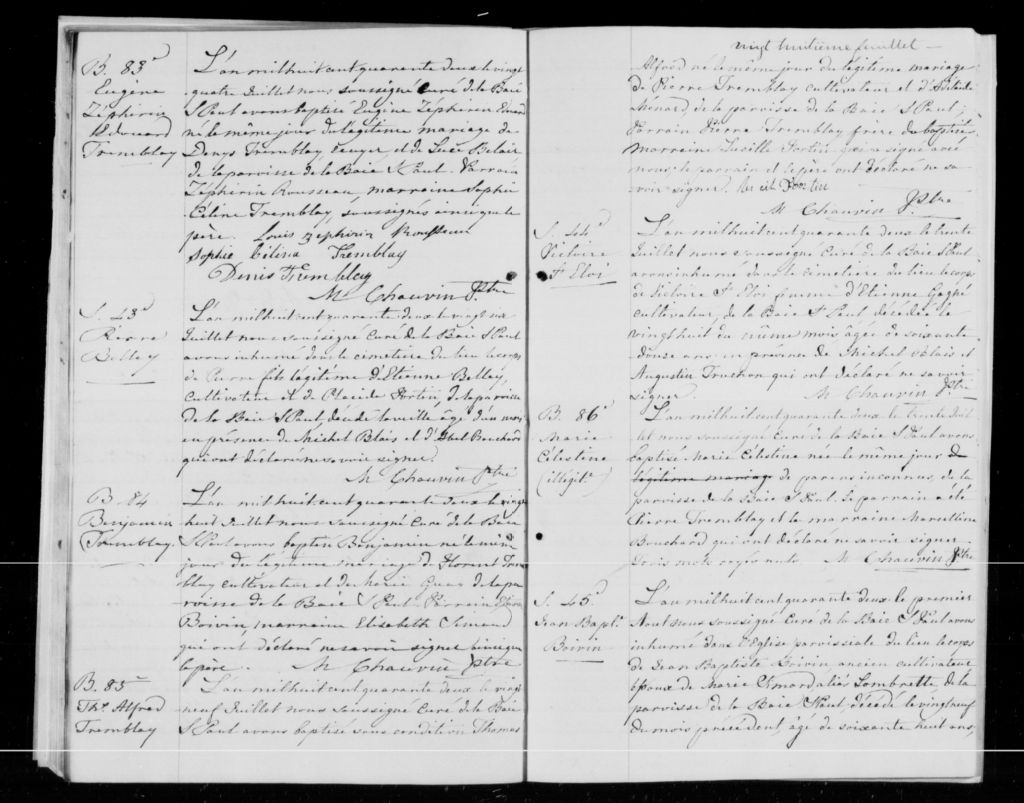 B. 83e
Eugène
Zéphirin
Edouard
Tremblay
L'an mil huit cent quarante deux le vingt
quatre Juillet nous soussigné Curé de la Baie
S Paul avons baptisé Eugène Zéphirin Edouard
né le même jour du légitime mariage de
Denys Tremblay, Ecuyer et de Luce Belair
de la paroisse de la Baie S Paul. Parrain
Zéphirin Rousseau, marraine Sophie
Céline Tremblay, soussignés ainsi que le
père. Louis zephirin Rousseau
Sophie Célina Tremblay
Denis Tremblay
M Chauvin Ptre
S. 43e
Pierre
Belley
L'an mil huit cent quarante deux le vingt
Juillet nous soussigné Curé de la Baie S Paul
avons inhumé dans le cimetière du lieu le corps
de Pierre fils légitime d'Etienne Belley,
Cultivateur et de Placide Fortin, de la paroisse
de la Baie S Paul, décédé la veille âgé d'un mois
en présence de Michel Blais et d'Abel Bouchard
qui ont déclaré ne savoir signer.
M Chauvin Ptre
B. 84
Benjamin
Tremblay.
L'an mil huit cent quarante deux le vingt
huit Juillet nous soussigné Curé de la Baie
S Paul avons baptisé Benjamin né le même
jour du légitime mariage de Florent Trem
blay cultivateur et de Marie Guay de la pa
roisse de la Baie S Paul. Parrain
Boivin, marraine Elisabeth Simard
qui ont déclaré ne savoir signer ainsi que
le père. M Chauvin Ptre
B. 85
Ths Alfred
Tremblay
L'an mil huit cent quarante deux le vingt
neuf Juillet nous soussigné Curé de la Baie
S Paul avons baptisé sous condition Thomas
vingt huitième feuillet
Alfred né le même jour du légitime mariage
de Pierre Tremblay cultivateur et d'Adélaide
Menard, de la paroisse de la Baie S Paul;
Parrain Pierre Tremblay frère du baptisé,
marraine Lucille Fortin qui a signé avec
nous, le parrain et le père ont déclaré ne sa
voir signer. Fortin
M Chauvin Ptre
S. 44e
Victoire
St Eloi
L'an mil huit cent quarante deux le trente
Juillet nous soussigné Curé de la Baie S Paul
avons inhumé dans le cimetière du lieu le corps
de Victoire St Eloi femme d'Etienne Gagné
cultivateur, de la Baie St Paul décédée le
vingt huit du même mois âgée de soixante
douze ans en présence de Michel Blais et
Augustin Truchon qui ont déclaré ne savoir
signer. M Chauvin Ptre
B. 86e
Marie
Célestine
(illégite)
L'an mil huit cent quarante deux le trente Juil
let nous soussigné Curé de la Baie S Paul avons
baptisé Marie Célestine née le même jour de
légitime mariage de parens inconnus, de la
paroisse de la Baie S Paul. Le parrain a été
Pierre Tremblay et la marraine Marcelline
Bouchard qui ont déclaré ne savoir signer
Trois mots rayés nuls M Chauvin Ptre
S. 45e
Jean Bapte
Boivin
L'an mil huit cent quarante deux le premier
Aout nous soussigné Curé de la Baie S Paul avons
inhumé dans l'Eglise paroissiale du lieu le corps
de Jean Baptiste Boivin ancien cultivateur
époux de Marie Simard aliàs Lombrette de la
paroisse de la Baie S Paul décédé le vingt neuf
du mois précédent, âgé de soixante huit ans,